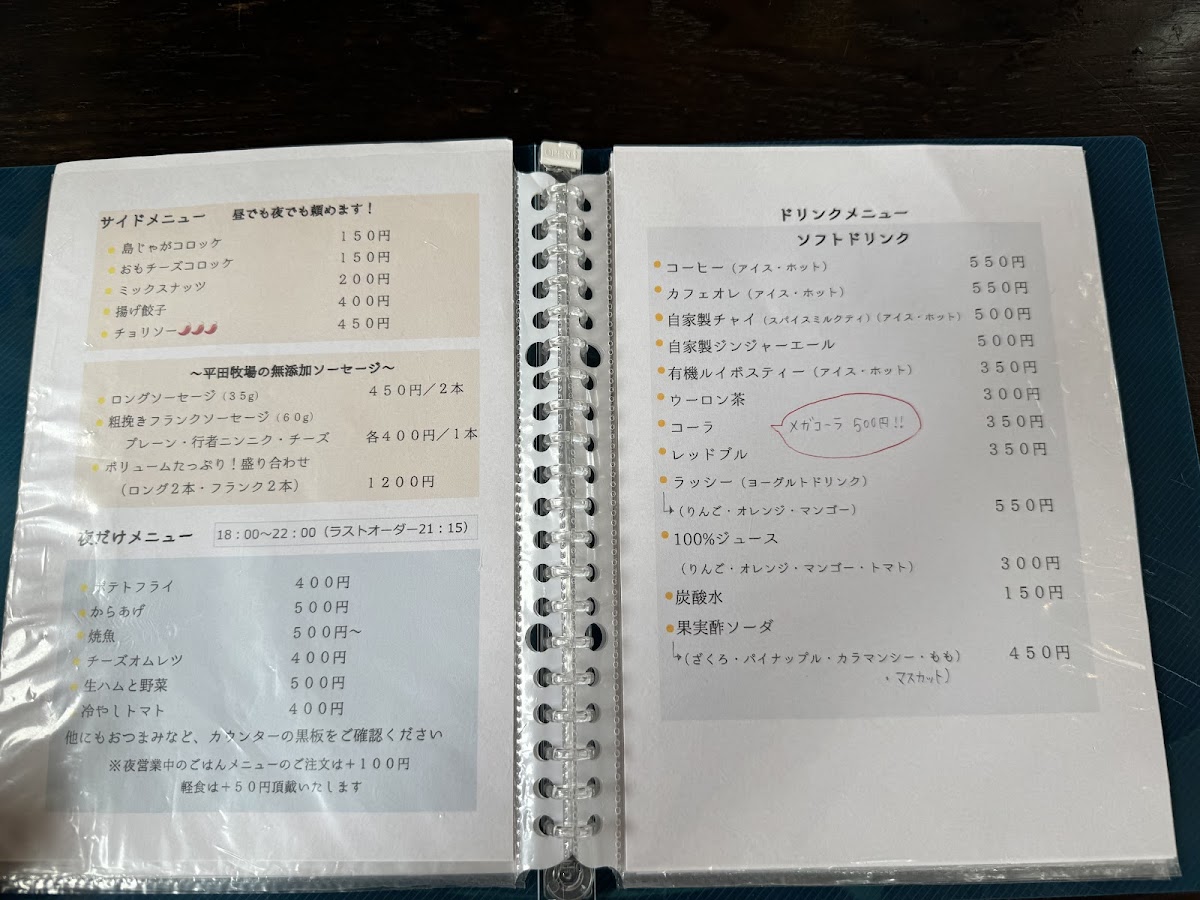 サイドメニュー 昼でも夜でも頼めます！
島じゃがコロッケ 150円
おもチーズコロッケ 150円
ミックスナッツ 200円
揚げ餃子 400円
チョリソー 450円
～平田牧場の無添加ソーセージ～
ロングソーセージ（35g） 450円／2本
粗挽きフランクソーセージ（60g）
プレーン・行者ニンニク・チーズ 各400円／1本
ボリュームたっぷり！盛り合わせ
（ロング2本・フランク2本） 1200円
夜だけメニュー 18：00～22：00（ラストオーダー21：15）
ポテトフライ 400円
からあげ 500円
焼魚 500円～
チーズオムレツ 400円
生ハムと野菜 500円
冷やしトマト 400円
他にもおつまみなど、カウンターの黒板をご確認ください
※夜営業中のごはんメニューのご注文は＋100円
軽食は＋50円頂戴いたします
ドリンクメニュー
ソフトドリンク
コーヒー（アイス・ホット） 550円
カフェオレ（アイス・ホット） 550円
自家製チャイ（スパイスミルクティ）（アイス・ホット） 500円
自家製ジンジャーエール 500円
有機ルイボスティー（アイス・ホット） 350円
ウーロン茶 300円
コーラ メガコーラ 500円!! 350円
レッドブル 350円
ラッシー（ヨーグルトドリンク）
（りんご・オレンジ・マンゴー） 550円
100%ジュース
（りんご・オレンジ・マンゴー・トマト） 300円
炭酸水 150円
果実酢ソーダ
（ざくろ・パイナップル・カラマンシー・もも） 450円
・マスカット）